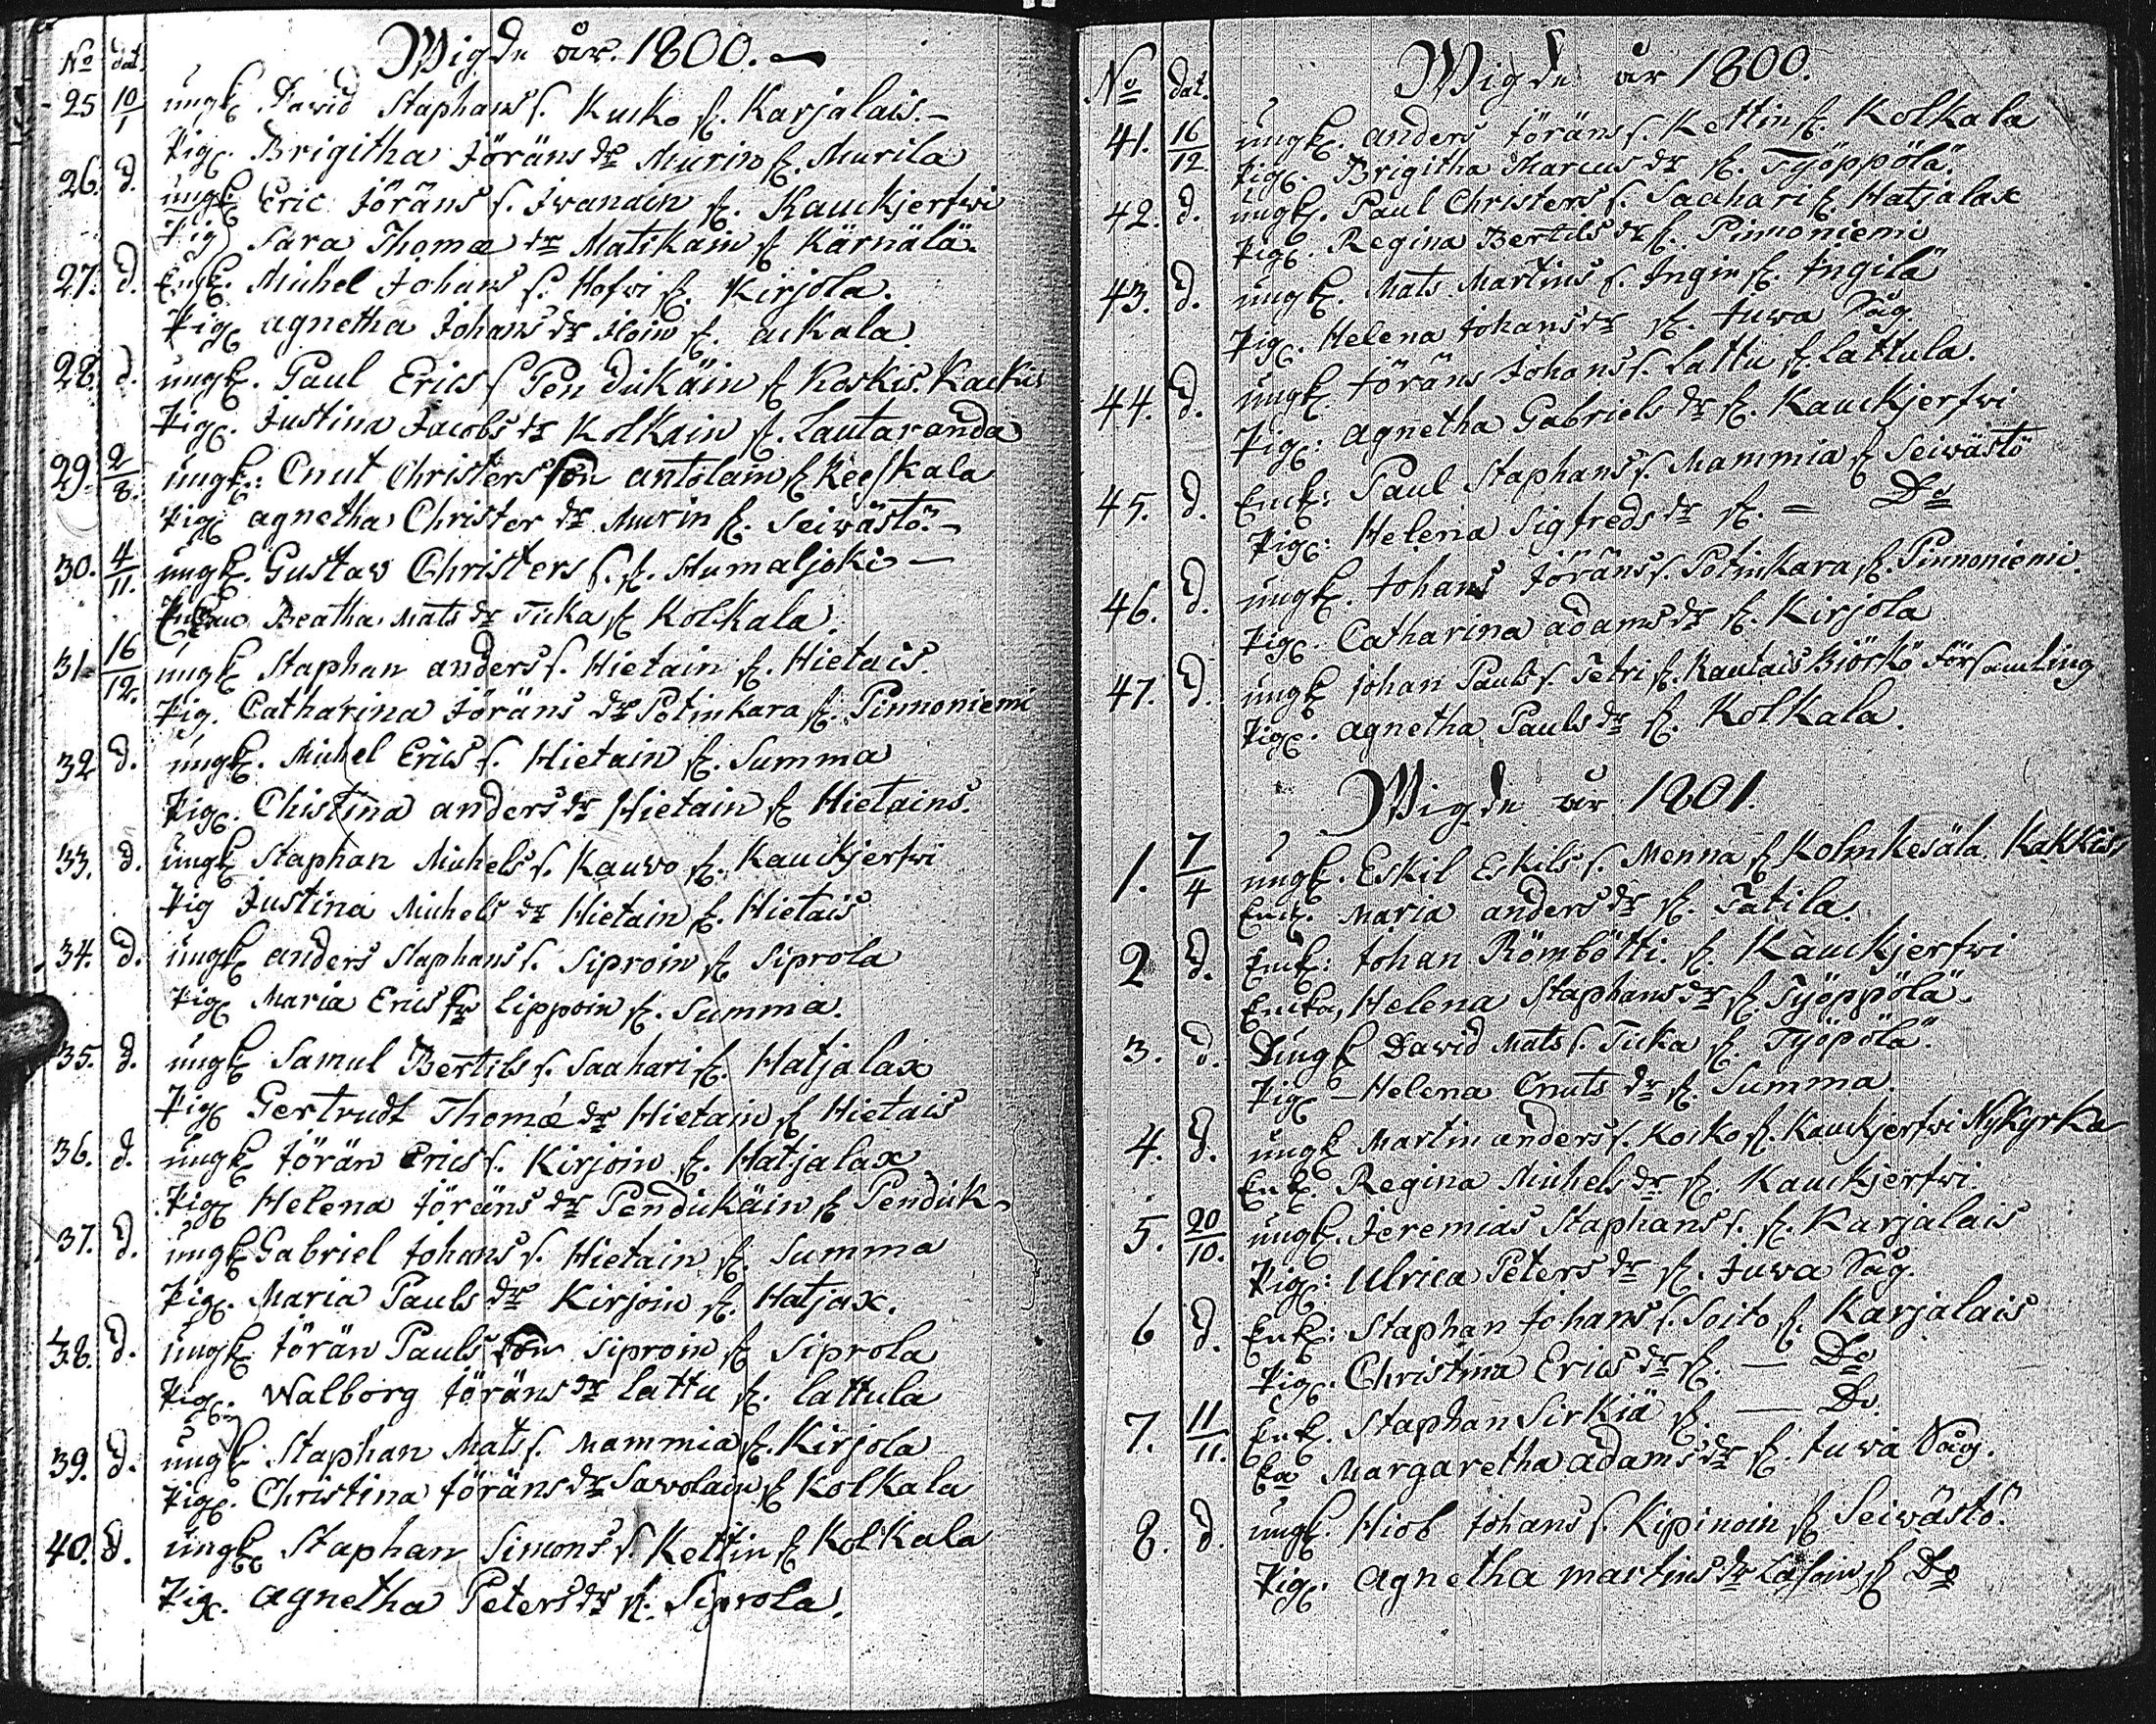 Wigde år. 1800. —
No dat.
25 10/1 ungk. David Staphans s. Kusko fr. Karjalais. –
Pig. Brigitha Jöräns dr Murin fr. Murila
26. d. ungk Eric Jöräns s. Iwanain fr. Kauckjerfwi
Pig Sara Thomæ dr Matikain fr Kärnälä.
27. d. Enk. Michel Johans s. Hofwi fr. Kirjola.
Pig agnetha Johans dr Iloin fr. ackala.
28. d. ungk. Paul Erics s Pendikäin fr Koskis. Kackis
Pig. Justina Jacobs dr Kolkain fr. Lautaranda
29. 2/8. ungk. Cnut Christers son antolain fr Keeskala
Pig agnetha Christer dr Murin fr. Seiwästö. –
30. 4/11. ungk. Gustav Christers s. fr. Humaljoki –
Beatha Mats dr Ticka fr Kolkala.
31 16/12. ungk Staphan anders s. Hietain fr. Hietais.
Pig. Catharina Jöräns dr Potinkara fr. Pinnoniemi
32 d. ungk. Michel Erics s. Hietain fr. Summa
Pig. Chistina anders dr Hietain fr Hietains.
33. d. ungk Staphan Michels s. Kauvo fr. Kauckjerfwi
Pig Justina Michels dr Hietain fr. Hietais
34. d. ungk anders Staphans s. Siproin fr Siprola
Pig Maria Erics dr Lippoin fr. Summa.
35. d. ungk Samul Bertils s. Saahari fr. Hatjalax
Pig Gertrudt Thomæ dr Hietain fr Hietais
36. d. ungk Jörän Erics s. Kirjoin fr. Hatjalax
Pig Helena Jöräns dr Pendikäin fr Pendik –
37. d. ungk Gabriel Johans s. Hietain fr. Summa
Pig. Maria Pauls dr Kirjoin fr. Hatjax.
38. d. ungk Jörän Pauls son Siproin fr Siprola
Pig. Walborg Jöräns dr Lattu fr. Lattula
39. d. ungk Staphan Mats s. Mammia fr. Kirjola
Pig. Christina Jöräns dr Savolain fr Kolkala
40. d. ungk Staphan Simons s. Kettin fr Kolkala
Pig. agnetha Peters dr fr. Siprola.
Wigde år 1800.
No dat.
41. 16/12 ungk. anders Jöräns s. Kettin fr. Kolkala
Pig. Brigitha Marcus dr fr. Työppölä.
42. d. ungk. Paul Christers s. Saahari fr. Hatjalax
Pig. Regina Bertils dr fr. Pinnoniemi
43. d. ungk. Mats Martins s. Ingin fr. Ingilä
Pig. Helena Johans dr fr. Juwa Såg.
44. d. ungk Jöräns Johans s. Lattu fr Lattula.
Pig. Agnetha Gabriels dr fr. Kauckjerfwi
45. d. Enck: Paul Staphans s. Mammia fr Seiwästö
Pig: Helena Sigfreds dr fr. – Do
46. d. ungk. Johans Jöräns s. Potinkara fr. Pinnoniemi.
Pig. Catharina adams dr fr. Kirjola
47. d. ungk Johan Pauls s. Petri fr. Rautais Björkö församling
Pig. agnetha Pauls dr fr. Kolkala.
Wigde år 1801.
1. 7/4 ungk. Eskil Eskils s. Menna fr Kolmkesäla. Kakkis
Enk. Maria anders dr fr. Tatila.
2 d. Enck: Johan Römbötti. fr. Kauckjerfwi
Encka, Helena Staphans dr fr. Työppölä.
3. d. Dungk David Mats s. Ticka fr. Työpölä.
Pig – Helena Cnuts dr fr. Summa.
4. d. ungk Martin anders s. Kosko fr. Kauckjerfwi Nykyrka
Enk. Regina Michels dr fr. Kauckjerfwi.
5. 20/10. ungk. Jeremias Staphans s. fr. Karjalais
Pig: Ulrica Peters dr fr. Juwa Såg.
6 d. Enk: Staphan Johans s. Soito fr. Karjalais
Pig. Christina Erics dr fr. — Do
7. 11/11. Enk. Staphan Sirkiä fr. — Do.
Ea Margaretha adams dr fr. Juwa Såg.
8. d. ungk. Hiob Johans s. Kipinoin fr Seiwästö.
Pig. Agnetha martins dr fr Do